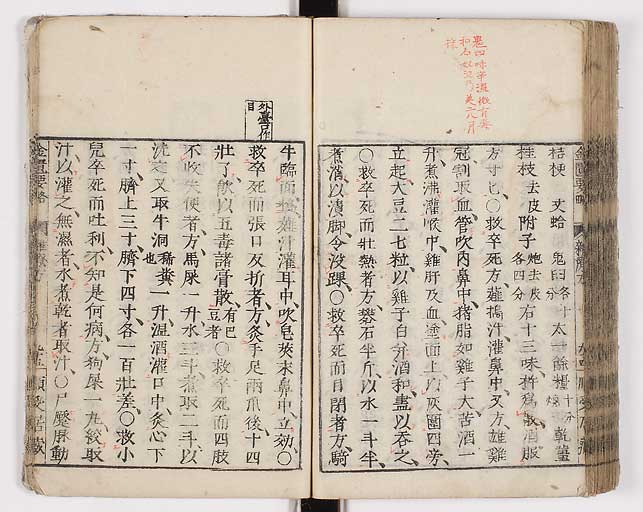 桔梗 文蛤 鬼臼各十分 太一餘糧十分燒 乾薑
桂枝去皮 附子炮去皮各四分 右十三味杵爲散酒服
方寸匕○救卒死方薤搗汁灌鼻中又方雄雞
冠割取血管吹内鼻中猪脂如雞子大苦酒一
升煮沸灌喉中雞肝及血塗面上以灰圍四旁
立起大豆二七粒以雞子白并酒和盡以吞之
○救卒死而壯熱者方礬石半斤以水一斗半
煮消以漬脚令没踝○救卒死而目閉者方騎
牛臨面搗薤汁灌耳中吹皂莢末鼻中立効○
救卒死而張口反折者方灸手足兩爪後十四
壯了飮以五毒諸膏散有巴豆者○救卒死而四肢
不收失便者方馬屎一升水三斗煮取二斗以
洗之又取牛洞稀糞也一升溫酒灌口中灸心下
一寸臍上三寸臍下四寸各一百壯差○救小
兒卒死而吐利不知是何病方狗屎一丸絞取
汁以灌之無濕者水煮乾者取汁○尸蹷脉動
外臺只作
目
金匱要略